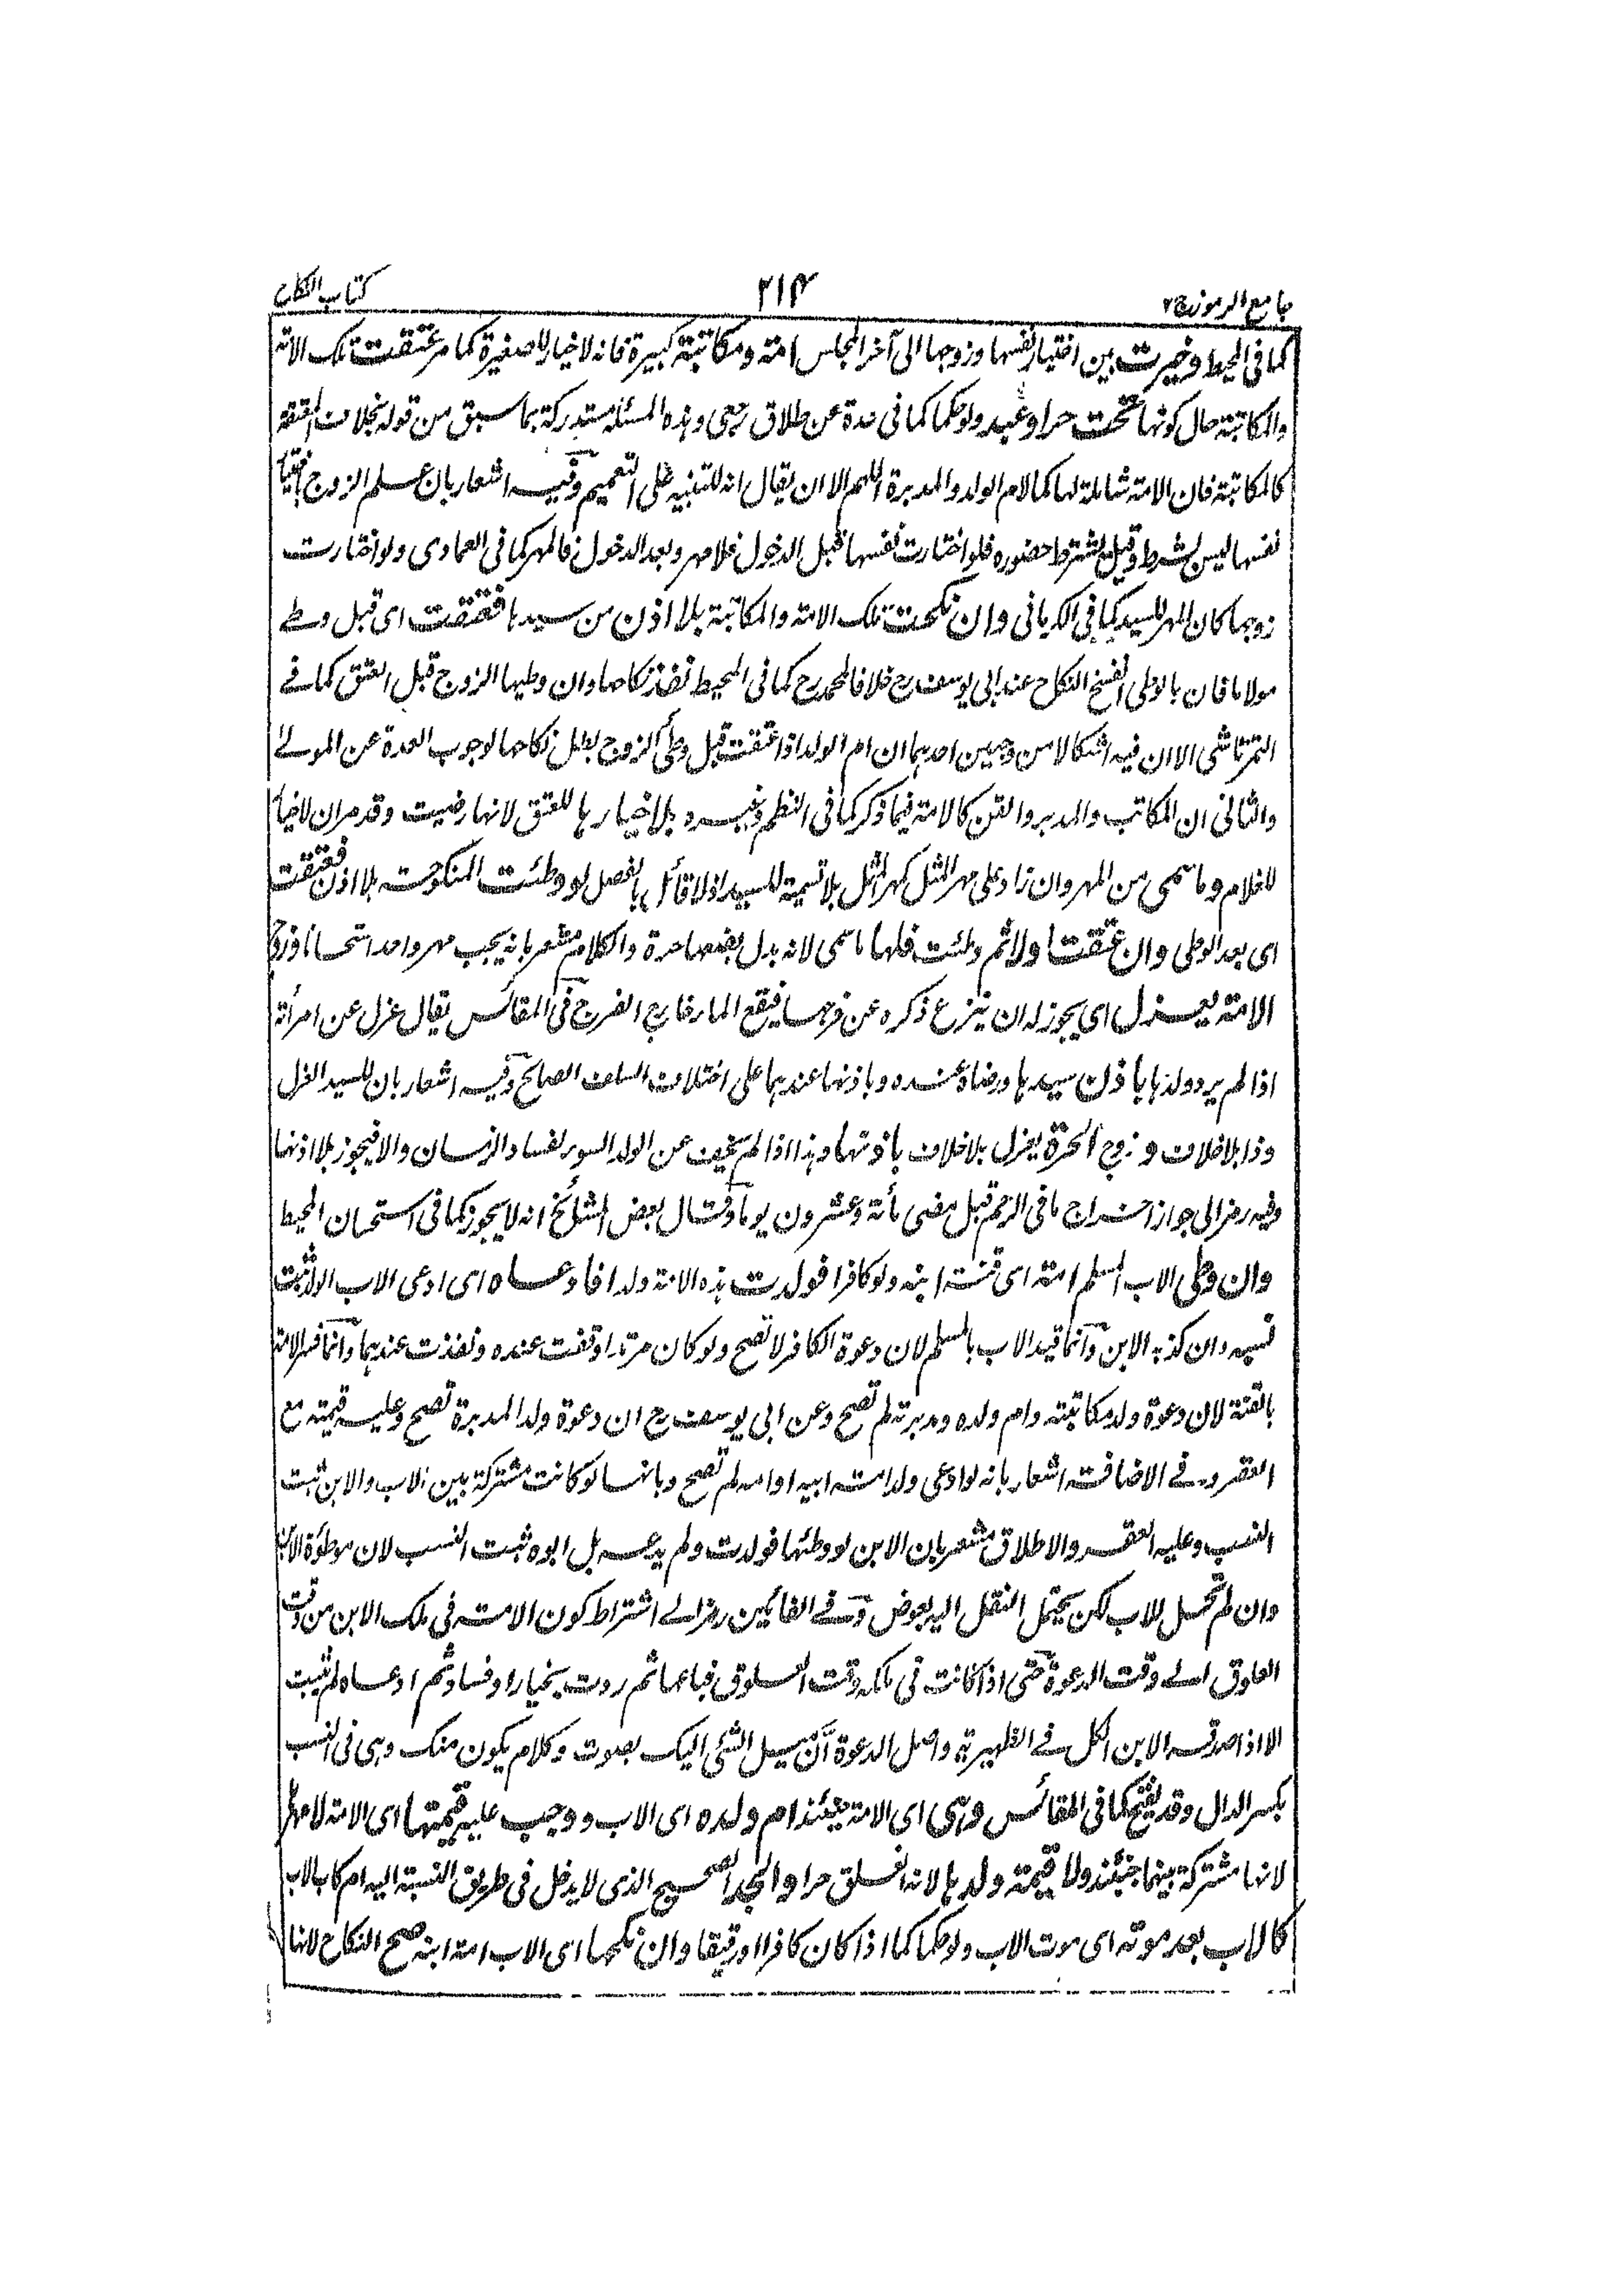 جامع الرموز ج ٢
٢١٤
كتاب النكاح
كما فى المحيط وخيرت بين اختيار نفسها وزوجها الى آخر المجلس امة ومكاتبة كبيرة فانه لا خيار للصغيرة كما مر عتقت تلك الامة
والمكاتبة حال كونها تحت حر او عبد ولو حكما كما فى عدة عن طلاق رجعى وهذه المسئلة مستدركة بما سبق من قوله بخلاف العتقة
كالمكاتبة فان الامة شاملة لها كما لام الولد والمدبرة اللهم الا ان يقال انه للتنبيه على التعميم وفيه اشعار بان علم الزوج باختيار
نفسها ليس بشرط وقيل يشترط حضوره فلو اختارت نفسها قبل الدخول فلا مهر وبعد الدخول فالمهر كما فى العمادى ولو اختارت
زوجها كان المهر للسيد كما فى الكرمانى وان نكحت تلك الامة والمكاتبة بلا اذن من سيدها فعتقت اى قبل وطى
مولاها فان بالوطى انفسخ النكاح عند ابى يوسف رح خلافا لمحمد رح كما فى المحيط نفذ نكاحها وان وطيها الزوج قبل العتق كما فى
التمرتاشى الا ان فيه اشكالا من وجهين احدهما ان ام الولد اذا عتقت قبل وطى الزوج بطل نكاحها لوجوب العدة عن المولى
والثانى ان المكاتب والمدبر والقن كالامة فيما ذكر كما فى النظم وغيره بلا خيار لها للعتق لانها رضيت وقد مر ان لا خيار
للغلام وما سمى من المهر وان زاد على مهر المثل كمهر المثل بلا تسمية للسيد اذ لا قائل بالفصل لو وطئت المنكوحة بلا اذن فعتقت
اى بعد الوطى وان عتقت اولا ثم وطئت فلها ما سمى لانه بدل بضعها حرة والكلام مشعر بانه يجب مهر واحد استحسانا وزوج
الامة يعزل اى يجوز له ان ينزع ذكره عن فرجها فيقع الماء خارج الفرج فى المقائس يقال عزل عن امرأته
اذا لم يرد ولدها باذن سيدها ورضاه عنده وباذنها عندهما على اختلاف السلف الصالح وفيه اشعار بان للسيد العزل
وذا بلا خلاف و زوج الحرة يعزل بلا خلاف باذنها وهذا اذا لم يخف عن الولد السوء لفساد الزمان والا فيجوز بلا اذنها
وفيه رمز الى جواز اخراج ما فى الرحم قبل مضى مائة وعشرون يوما وقال بعض المشائخ انه لا يجوز كما فى استحسان المحيط
وان وطى الاب المسلم امة اى قنة ابنه ولو كافرا فولدت هذه الامة ولدا فادعاه اى ادعى الاب الولد ثبت
نسبه وان كذبه الابن وانما قيد الاب بالمسلم لان دعوة الكافر لا تصح ولو كان مرتدا وقفت عنده ونفذت عندهما وانما فسر الامة
بالقنة لان دعوة ولد مكاتبته وام ولده ومدبرته لم تصح وعن ابى يوسف رح ان دعوة ولد المدبرة تصح وعليه قيمته مع
العقر وفى الاضافة اشعار بانه لو ادعى ولد امة ابيه او امه لم تصح وبانها لو كانت مشتركة بين الاب والابن ثبت
النسب وعليه العقر والاطلاق مشعر بان الابن لو وطئها فولدت ولم يدعه بل ابوه ثبت النسب لان موطوءة الابن
وان لم تحل للاب لكن يحتمل النقل اليه بعوض وفى الفائين رمز الى اشتراط كون الامة فى ملك الابن من وقت
العلوق الى وقت الدعوة حتى اذا كانت فى ملكه وقت العلوق فباعها ثم ردت بخيار او فساد ثم ادعاه لم يثبت
الا اذا صدقه الابن الكل فى الظهيرية واصل الدعوة ان تميل الشئ اليك بصوت وكلام يكون منك وهى فى النسب
بكسر الدال وقد يفتح كما فى المقائس وهى اى الامة حينئذ ام ولده اى الاب و وجب عليه قيمتها اى الامة لا مهرها
لانها مشتركة بينهما حينئذ ولا قيمة ولدها لانه انعلق حرا والجد الصحيح الذى لا يدخل فى طريق النسبة اليه ام كاب الاب
كالاب بعد موته اى موت الاب ولو حكما كما اذا كان كافرا او رقيقا وان نكحها اى الاب امة ابنه صح النكاح لانها